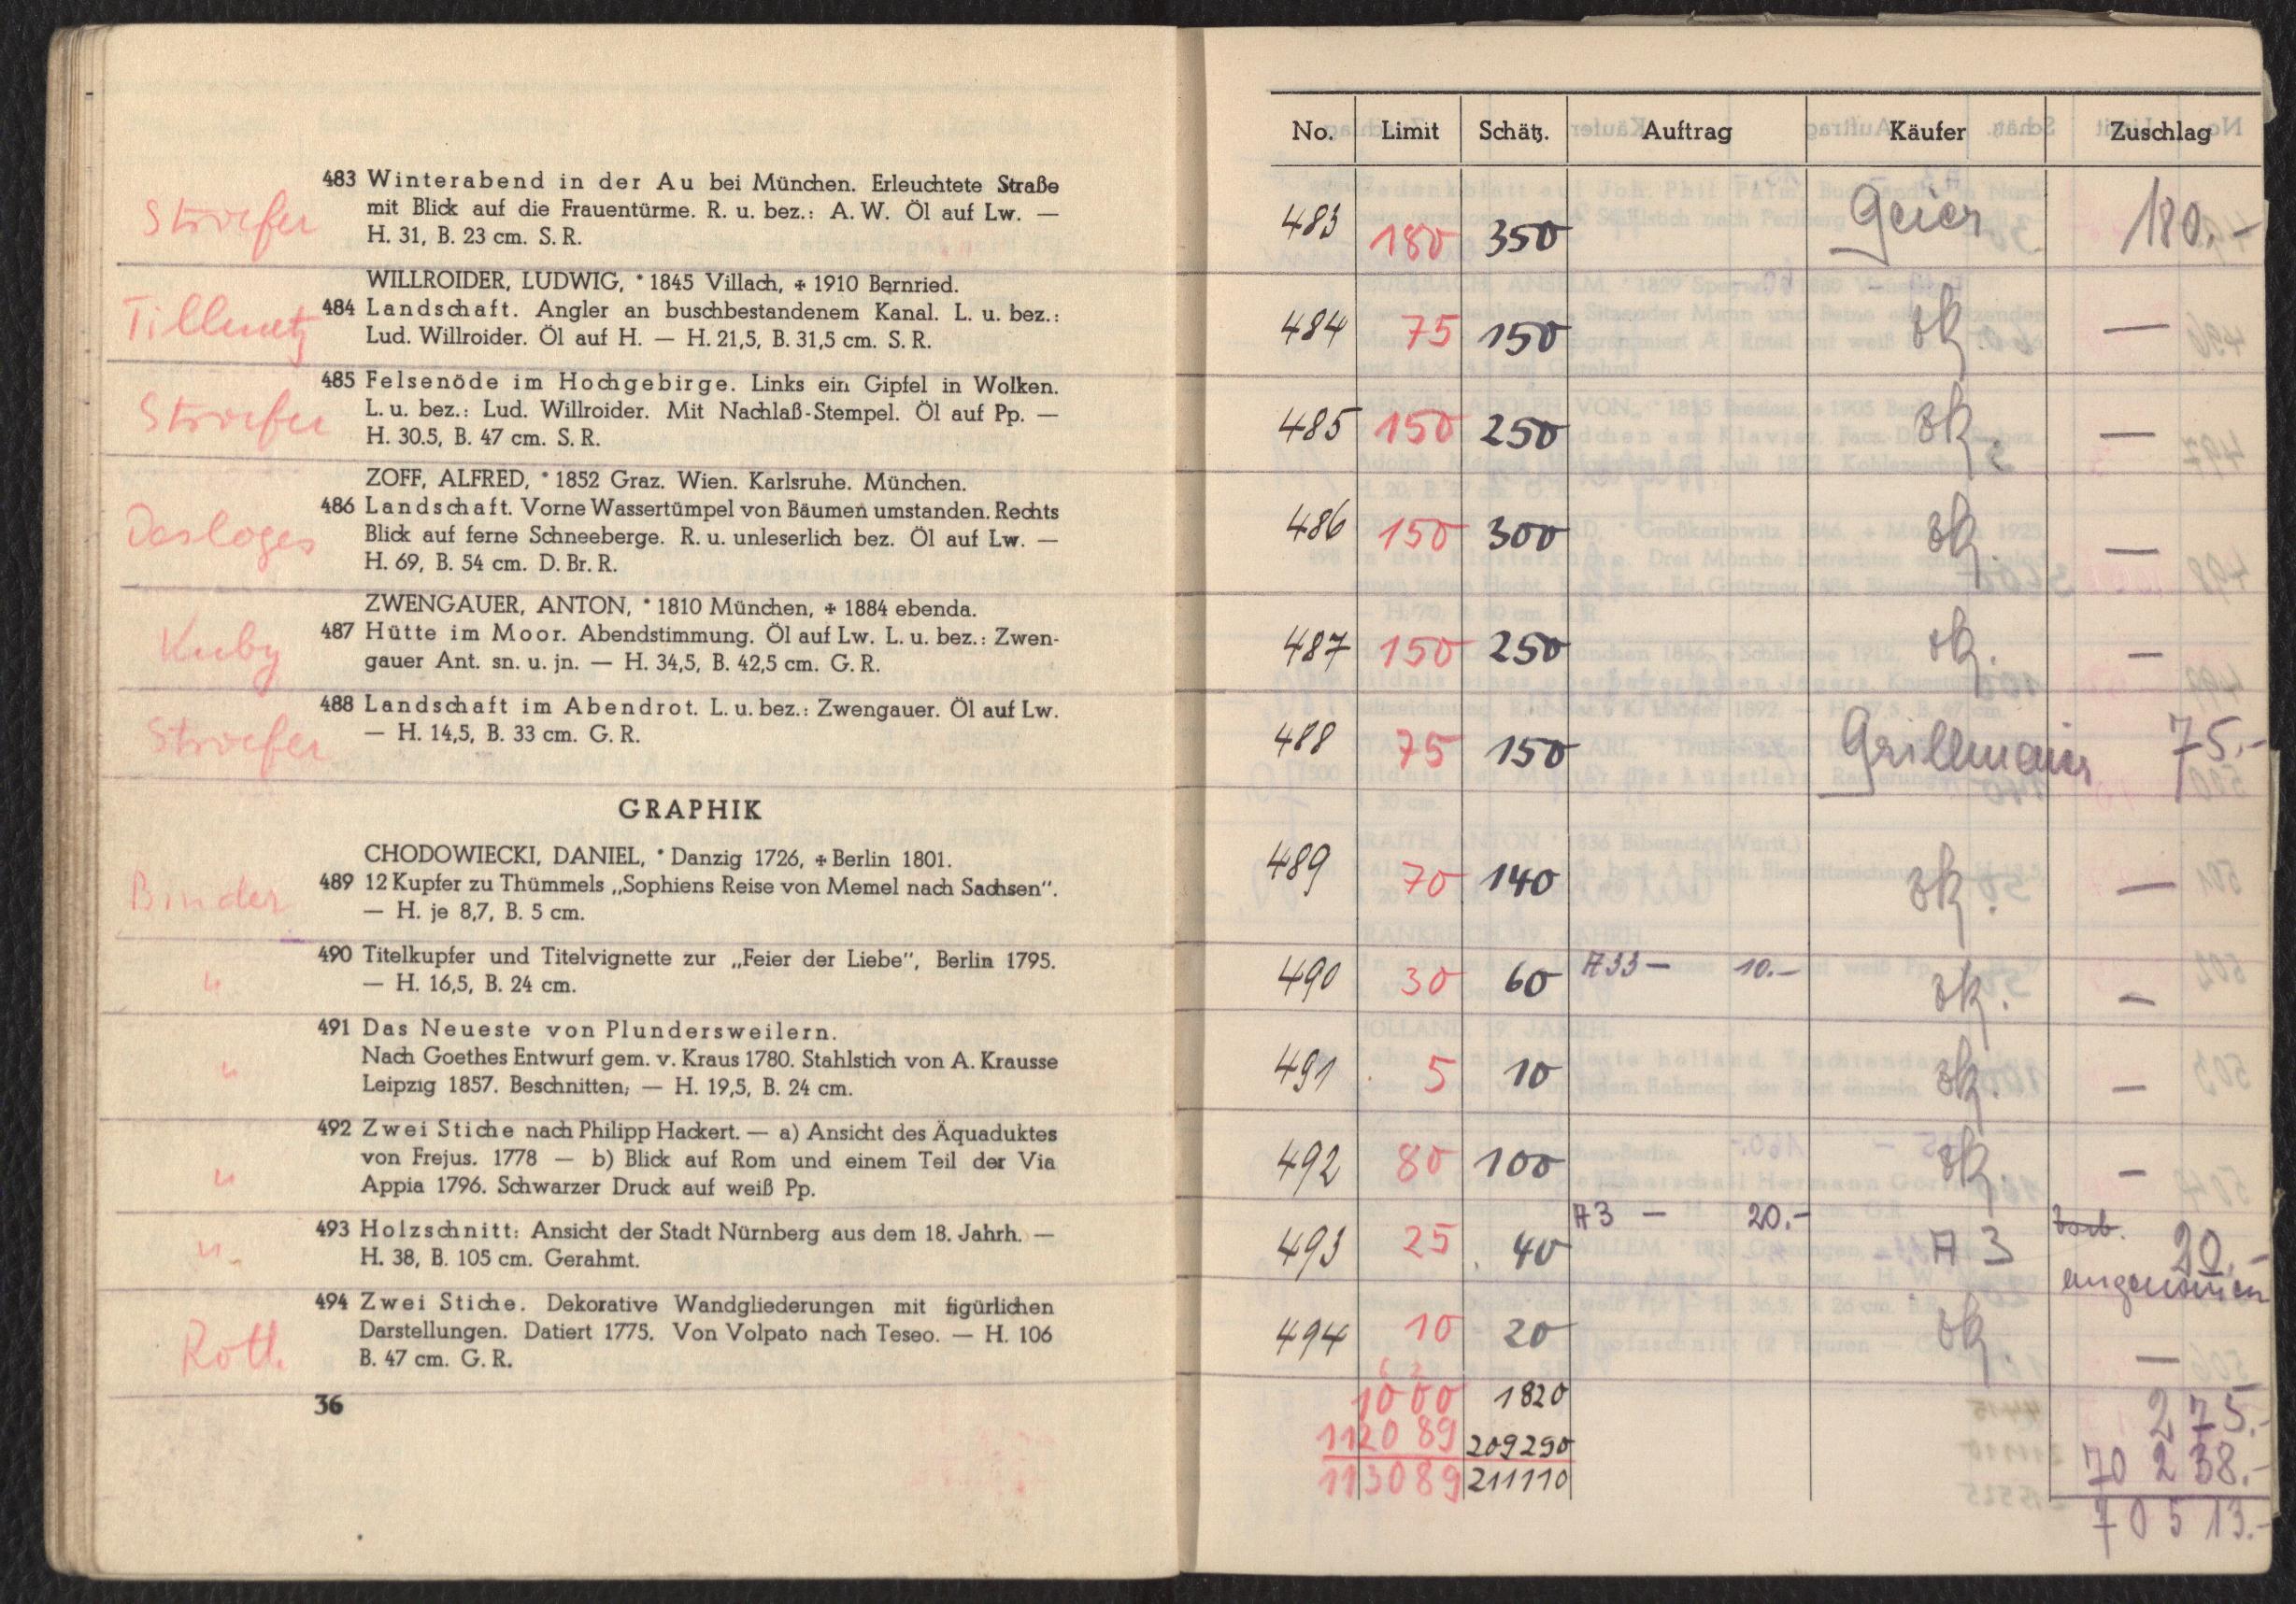 483 Winterabend in der Au bei München. Erleuchtete Straße
mit Blick auf die Frauentürme. R. u. bez.: A. W. Öl auf Lw. —
H. 31, B. 23 cm. S. R.
Stroefer
WILLROIDER, LUDWIG, * 1845 Villach, ✠ 1910 Bernried.
484 Landschaft. Angler an buschbestandenem Kanal. L. u. bez.:
Lud. Willroider. Öl auf H. — H. 21,5, B. 31,5 cm. S. R.
Tillmetz
485 Felsenöde im Hochgebirge. Links ein Gipfel in Wolken.
L. u. bez.: Lud. Willroider. Mit Nachlaß-Stempel. Öl auf Pp. —
H. 30.5, B. 47 cm. S. R.
Stroefer
ZOFF, ALFRED, * 1852 Graz. Wien. Karlsruhe. München.
486 Landschaft. Vorne Wassertümpel von Bäumen umstanden. Rechts
Blick auf ferne Schneeberge. R. u. unleserlich bez. Öl auf Lw. —
H. 69, B. 54 cm. D. Br. R.
Desloges
ZWENGAUER, ANTON, * 1810 München, ✠ 1884 ebenda.
487 Hütte im Moor. Abendstimmung. Öl auf Lw. L. u. bez.: Zwen-
gauer Ant. sn. u. jn. — H. 34,5, B. 42,5 cm. G. R.
Kuby
488 Landschaft im Abendrot. L. u. bez.: Zwengauer. Öl auf Lw.
— H. 14,5, B. 33 cm. G. R.
Stroefer
GRAPHIK
CHODOWIECKI, DANIEL, * Danzig 1726, ✠ Berlin 1801.
489 12 Kupfer zu Thümmels „Sophiens Reise von Memel nach Sachsen“.
— H. je 8,7, B. 5 cm.
Binder
490 Titelkupfer und Titelvignette zur „Feier der Liebe“, Berlin 1795.
— H. 16,5, B. 24 cm.
"
491 Das Neueste von Plundersweilern.
Nach Goethes Entwurf gem. v. Kraus 1780. Stahlstich von A. Krausse
Leipzig 1857. Beschnitten; — H. 19,5, B. 24 cm.
"
492 Zwei Stiche nach Philipp Hackert. — a) Ansicht des Äquaduktes
von Frejus. 1778 — b) Blick auf Rom und einem Teil der Via
Appia 1796. Schwarzer Druck auf weiß Pp.
"
493 Holzschnitt: Ansicht der Stadt Nürnberg aus dem 18. Jahrh. —
H. 38, B. 105 cm. Gerahmt.
"
494 Zwei Stiche. Dekorative Wandgliederungen mit figürlichen
Darstellungen. Datiert 1775. Von Volpato nach Teseo. — H. 106
B. 47 cm. G. R.
Roth
36
No. Limit Schätz. Auftrag Käufer Zuschlag
483 180 350 Geier 180.-
484 75 150 zk. —
485 150 250 zk. —
486 150 300 zk. —
487 150 250 zk. —
488 75 150 Grillmaier 75.-
489 70 140 zk. —
490 30 60 A33 — 10.— zk. —
491 5 10 zk. —
492 80 100 zk. —
493 25 40 A3 — 20.- A 3 20.-
angenommen
494 10 20 zk. —
1000 1820 275.-
112089 209290 70 238.-
113089 211110 70 513.-